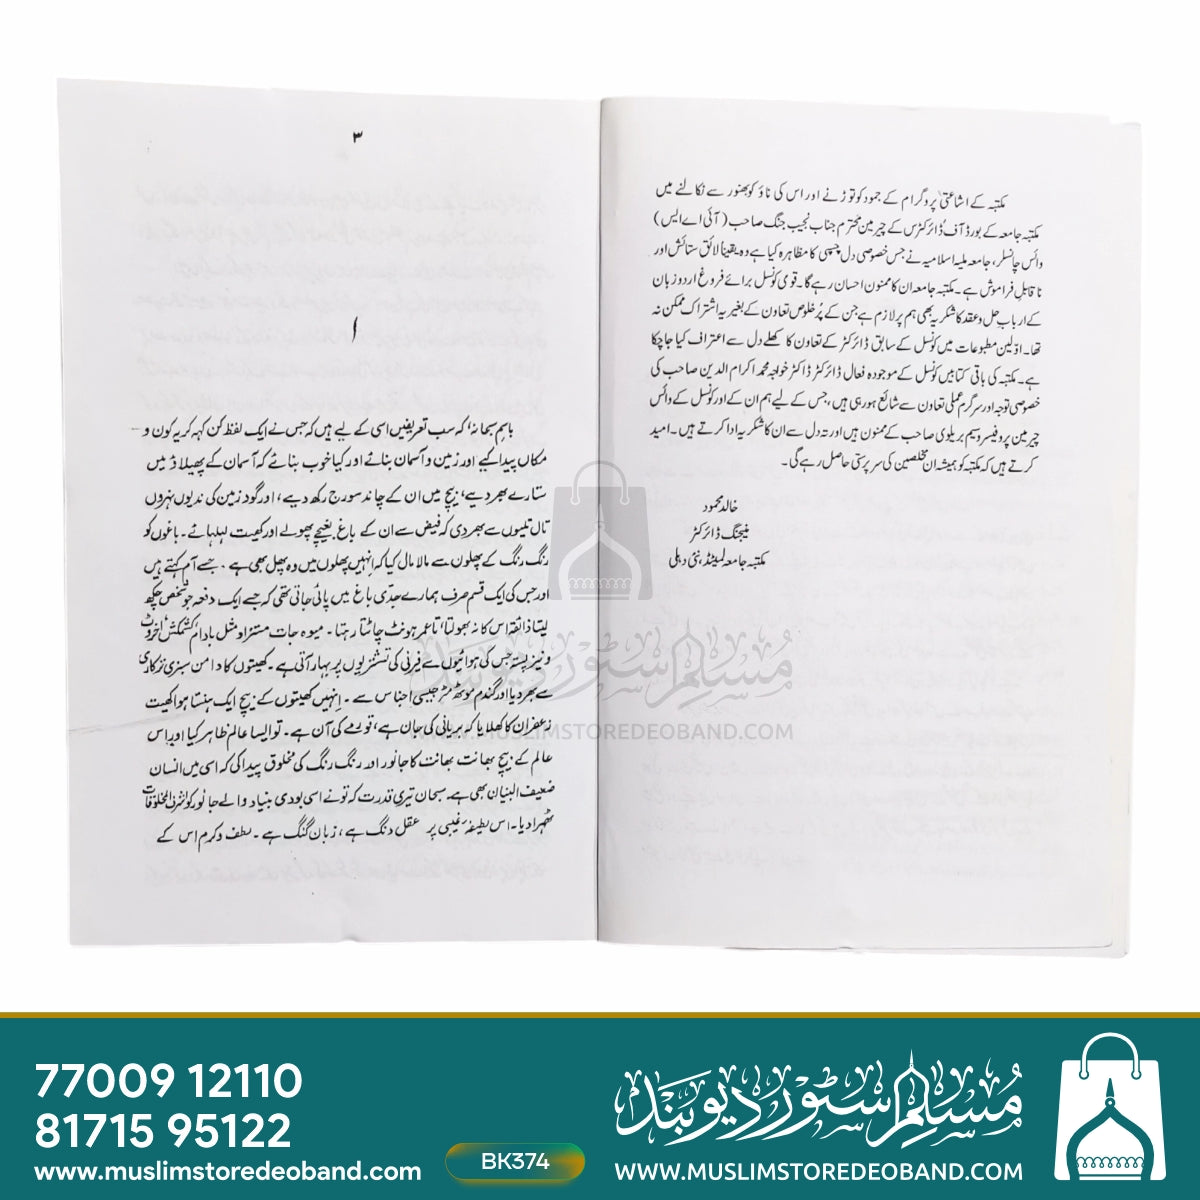 مکتبہ کے اشاعتی پروگرام کے جمود کو توڑنے اور اس کی ناؤ کو بھنور سے نکالنے میں
مکتبہ جامعہ کے بورڈ آف ڈائرکٹرس کے چیرمین محترم جناب نجیب جنگ صاحب (آئی اے ایس)
وائس چانسلر، جامعہ ملیہ اسلامیہ نے جس خصوصی دل چسپی کا مظاہرہ کیا ہے وہ یقیناً لائق ستائش اور
ناقابلِ فراموش ہے۔ مکتبہ جامعہ ان کا ممنون احسان رہے گا۔ قومی کونسل برائے فروغ اردو زبان
کے ارباب حل و عقد کا شکریہ بھی ہم پر لازم ہے جن کے پُرخلوص تعاون کے بغیر یہ اشتراک ممکن نہ
تھا۔ اوّلین مطبوعات میں کونسل کے سابق ڈائرکٹر کے تعاون کا کھلے دل سے اعتراف کیا جاچکا
ہے۔ مکتبہ کی باقی کتابیں کونسل کے موجودہ فعال ڈائرکٹر ڈاکٹر خواجہ محمد اکرام الدین صاحب کی
خصوصی توجہ اور سرگرم عملی تعاون سے شائع ہورہی ہیں، جس کے لیے ہم ان کے اور کونسل کے وائس
چیرمین پروفیسر وسیم بریلوی صاحب کے ممنون ہیں اور تہ دل سے ان کا شکریہ ادا کرتے ہیں۔ امید
کرتے ہیں کہ مکتبہ کو ہمیشہ ان مخلصین کی سرپرستی حاصل رہے گی۔
خالد محمود
منیجنگ ڈائرکٹر
مکتبہ جامعہ لمیٹڈ، نئی دہلی
۳
۱
باسمِ سبحانہٗ کہ سب تعریفیں اسی کے لیے ہیں کہ جس نے ایک لفظ کن کہہ کر یہ کون و
مکاں پیدا کیے اور زمین و آسمان بنائے اور کیا خوب بنائے کہ آسمان کے پھیلاؤ میں
ستارے بھر دیے، بیچ میں ان کے چاند سورج رکھ دیے، اور گود زمین کی ندیوں نہروں
تال تلیوں سے بھر دی کہ فیض سے ان کے باغ بغیچے پھولے اور کھیت لہلہائے۔ باغوں کو
رنگ رنگ کے پھلوں سے مالا مال کیا کہ انہیں پھلوں میں وہ پھل بھی ہے۔ جسے آم کہتے ہیں
اور جس کی ایک قسم صرف ہمارے جدّی باغ میں پائی جاتی تھی کہ جسے ایک دفعہ جو شخص چکھ
لیتا ذائقہ اس کا نہ بھولتا، تا عمر ہونٹ چاٹتا رہتا۔ میوہ جات مستزاد مثل بادام، کشمش، اخروٹ
و نیز پستہ جس کی ہوائیوں سے فیرنی کی تشتریوں پر بہار آتی ہے۔ کھیتوں کا دامن سبزی ترکاری
سے بھر دیا اور گندم موٹھ مٹر جیسی اجناس سے۔ انہیں کھیتوں کے بیچ ایک ہنستا ہوا کھیت
زعفران کا کھلایا کہ بریانی کی جان ہے، تورمے کی آن ہے۔ تو ایسا عالم ظاہر کیا اور اس
عالم کے بیچ بھانت بھانت کا جانور اور رنگ رنگ کی مخلوق پیدا کی کہ اسی میں انسان
ضعیف البنیان بھی ہے۔ سبحان تیری قدرت کہ تو نے اسی بودی بنیاد والے جانور کو اشرف المخلوقات
ٹھہرا دیا۔ اس لطیفۂ غیبی پر عقل دنگ ہے، زبان گنگ ہے۔ لطف و کرم اس کے
مسلم سٹور دیوبند
WWW.MUSLIMSTOREDEOBAND.COM
77009 12110
81715 95122
www.muslimstoredeoband.com
BK374
مسلم سٹور دیوبند
WWW.MUSLIMSTOREDEOBAND.COM